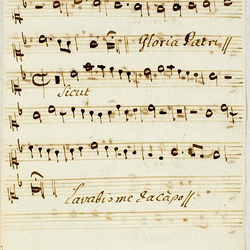 Gloria Patri //
Sicut
Lavabis me da capo //